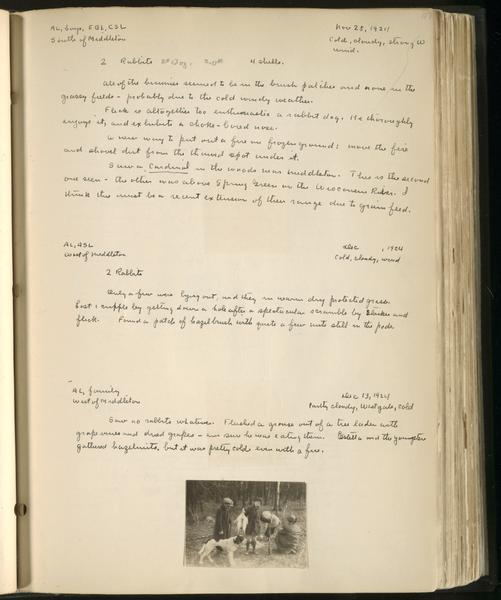 AL, boys, FBL, CSL Nov 25, 1924
South of Middleton Cold, cloudy, strong W
wind.
2 Rabbits 4 shells.
All of the bunnies seemed to be in the brush patches and none in the
grassy fields - probably due to the cold windy weather.
Flick is altogether too enthusiastic a rabbit dog. He thoroughly
enjoys it, and exhibits a choke-bored nose.
A new way to put out a fire on frozen ground: move the fire
and shovel dirt from the thawed spot under it.
Saw a Cardinal in the woods near Middleton. This is the second
one seen - the other was above Spring Green on the Wisconsin River. I
think this must be a recent extension of their range due to grain feed.
AL, ASL Dec , 1924
West of Middleton Cold, cloudy, wind
2 Rabbits
Only a few were lying out, and they in warm dry protected grass.
Lost 1 cripple by getting down a hole after a spectacular scramble by and
Flick. Found a patch of hazel brush with quite a few nuts still in the pods.
AL, family Dec 13, 1924
West of Middleton Partly cloudy, West gale, cold
Saw no rabbits whatever. Flushed a grouse out of a tree laden with
grape vines and dried grapes - am sure he was eating them. Estella and the youngsters
gathered hazelnuts, but it was pretty cold even with a fire.